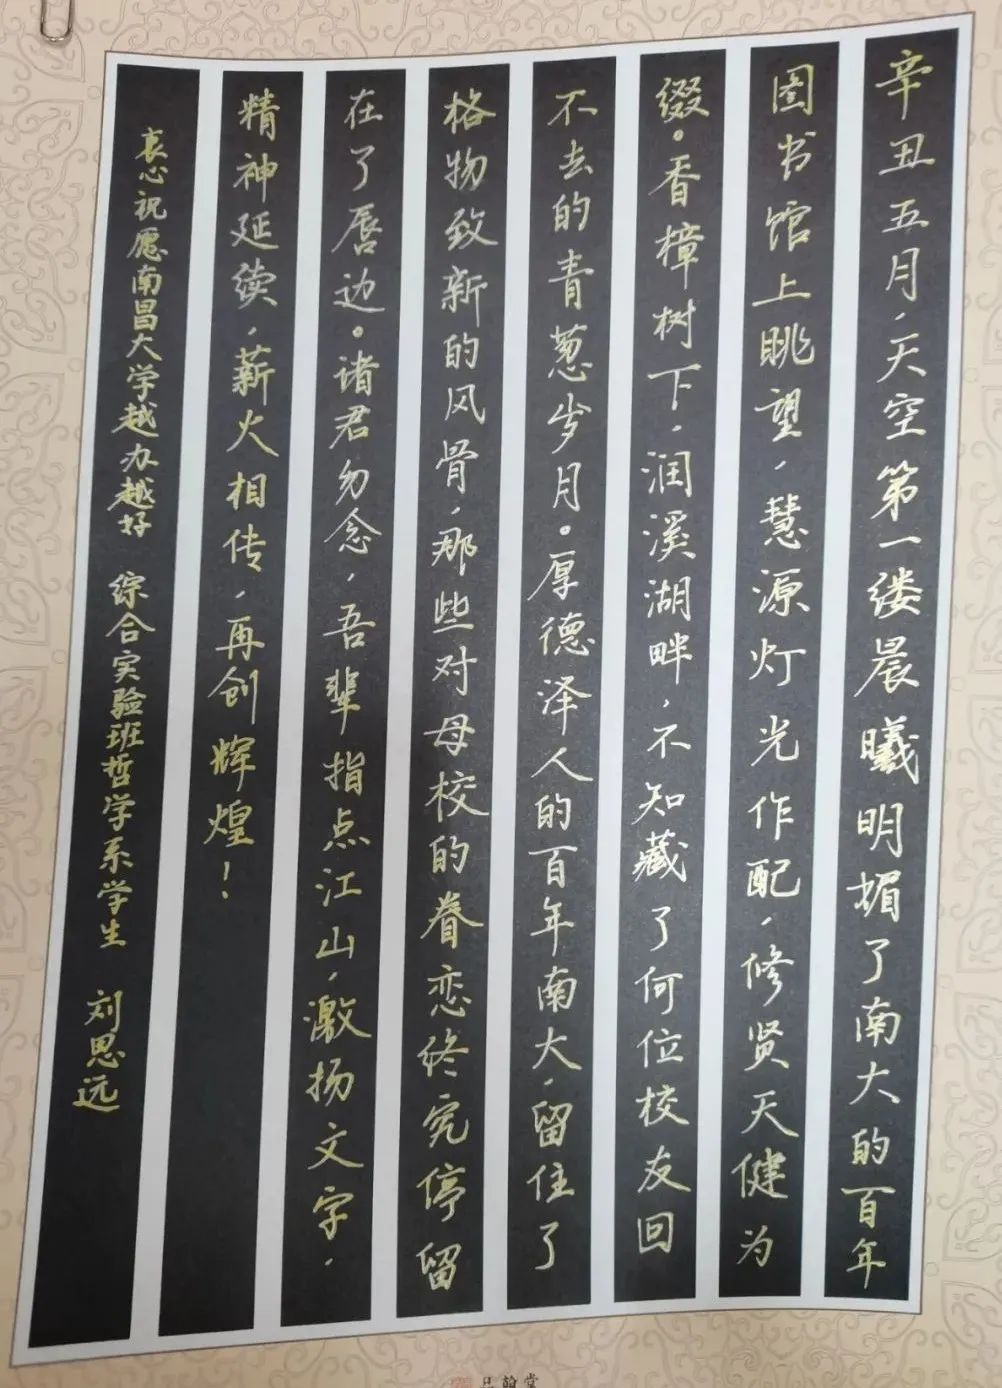 辛丑五月，天空第一缕晨曦明媚了南大的百年
图书馆上眺望，慧源灯光作配，修贤天健为
缀。香樟树下，润溪湖畔，不知藏了何位校友回
不去的青葱岁月。厚德泽人的百年南大，留住了
格物致新的风骨，那些对母校的眷恋终究停留
在了唇边。诸君勿念，吾辈指点江山，激扬文字，
精神延续，薪火相传，再创辉煌！
衷心祝愿南昌大学越办越好 综合实验班哲学系学生 刘思远
品翰堂